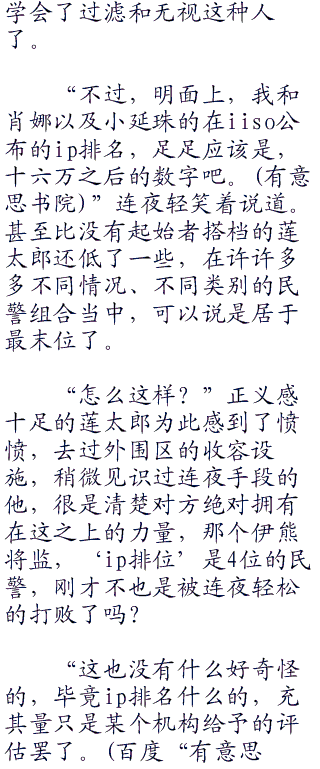 学会了过滤和无视这种人
了。
“不过，明面上，我和
肖娜以及小延珠的在iiso公
布的ip排名，足足应该是，
十六万之后的数字吧。(有意
思书院)”连夜轻笑着说道。
甚至比没有起始者搭档的莲
太郎还低了一些，在许许多
多不同情况、不同类别的民
警组合当中，可以说是居于
最末位了。
“怎么这样？”正义感
十足的莲太郎为此感到了愤
愤，去过外围区的收容设
施，稍微见识过连夜手段的
他，很是清楚对方绝对拥有
在这之上的力量，那个伊熊
将监，‘ip排位’是4位的民
警，刚才不也是被连夜轻松
的打败了吗？
“这也没有什么好奇怪
的，毕竟ip排名什么的，充
其量只是某个机构给予的评
估罢了。(百度“有意思